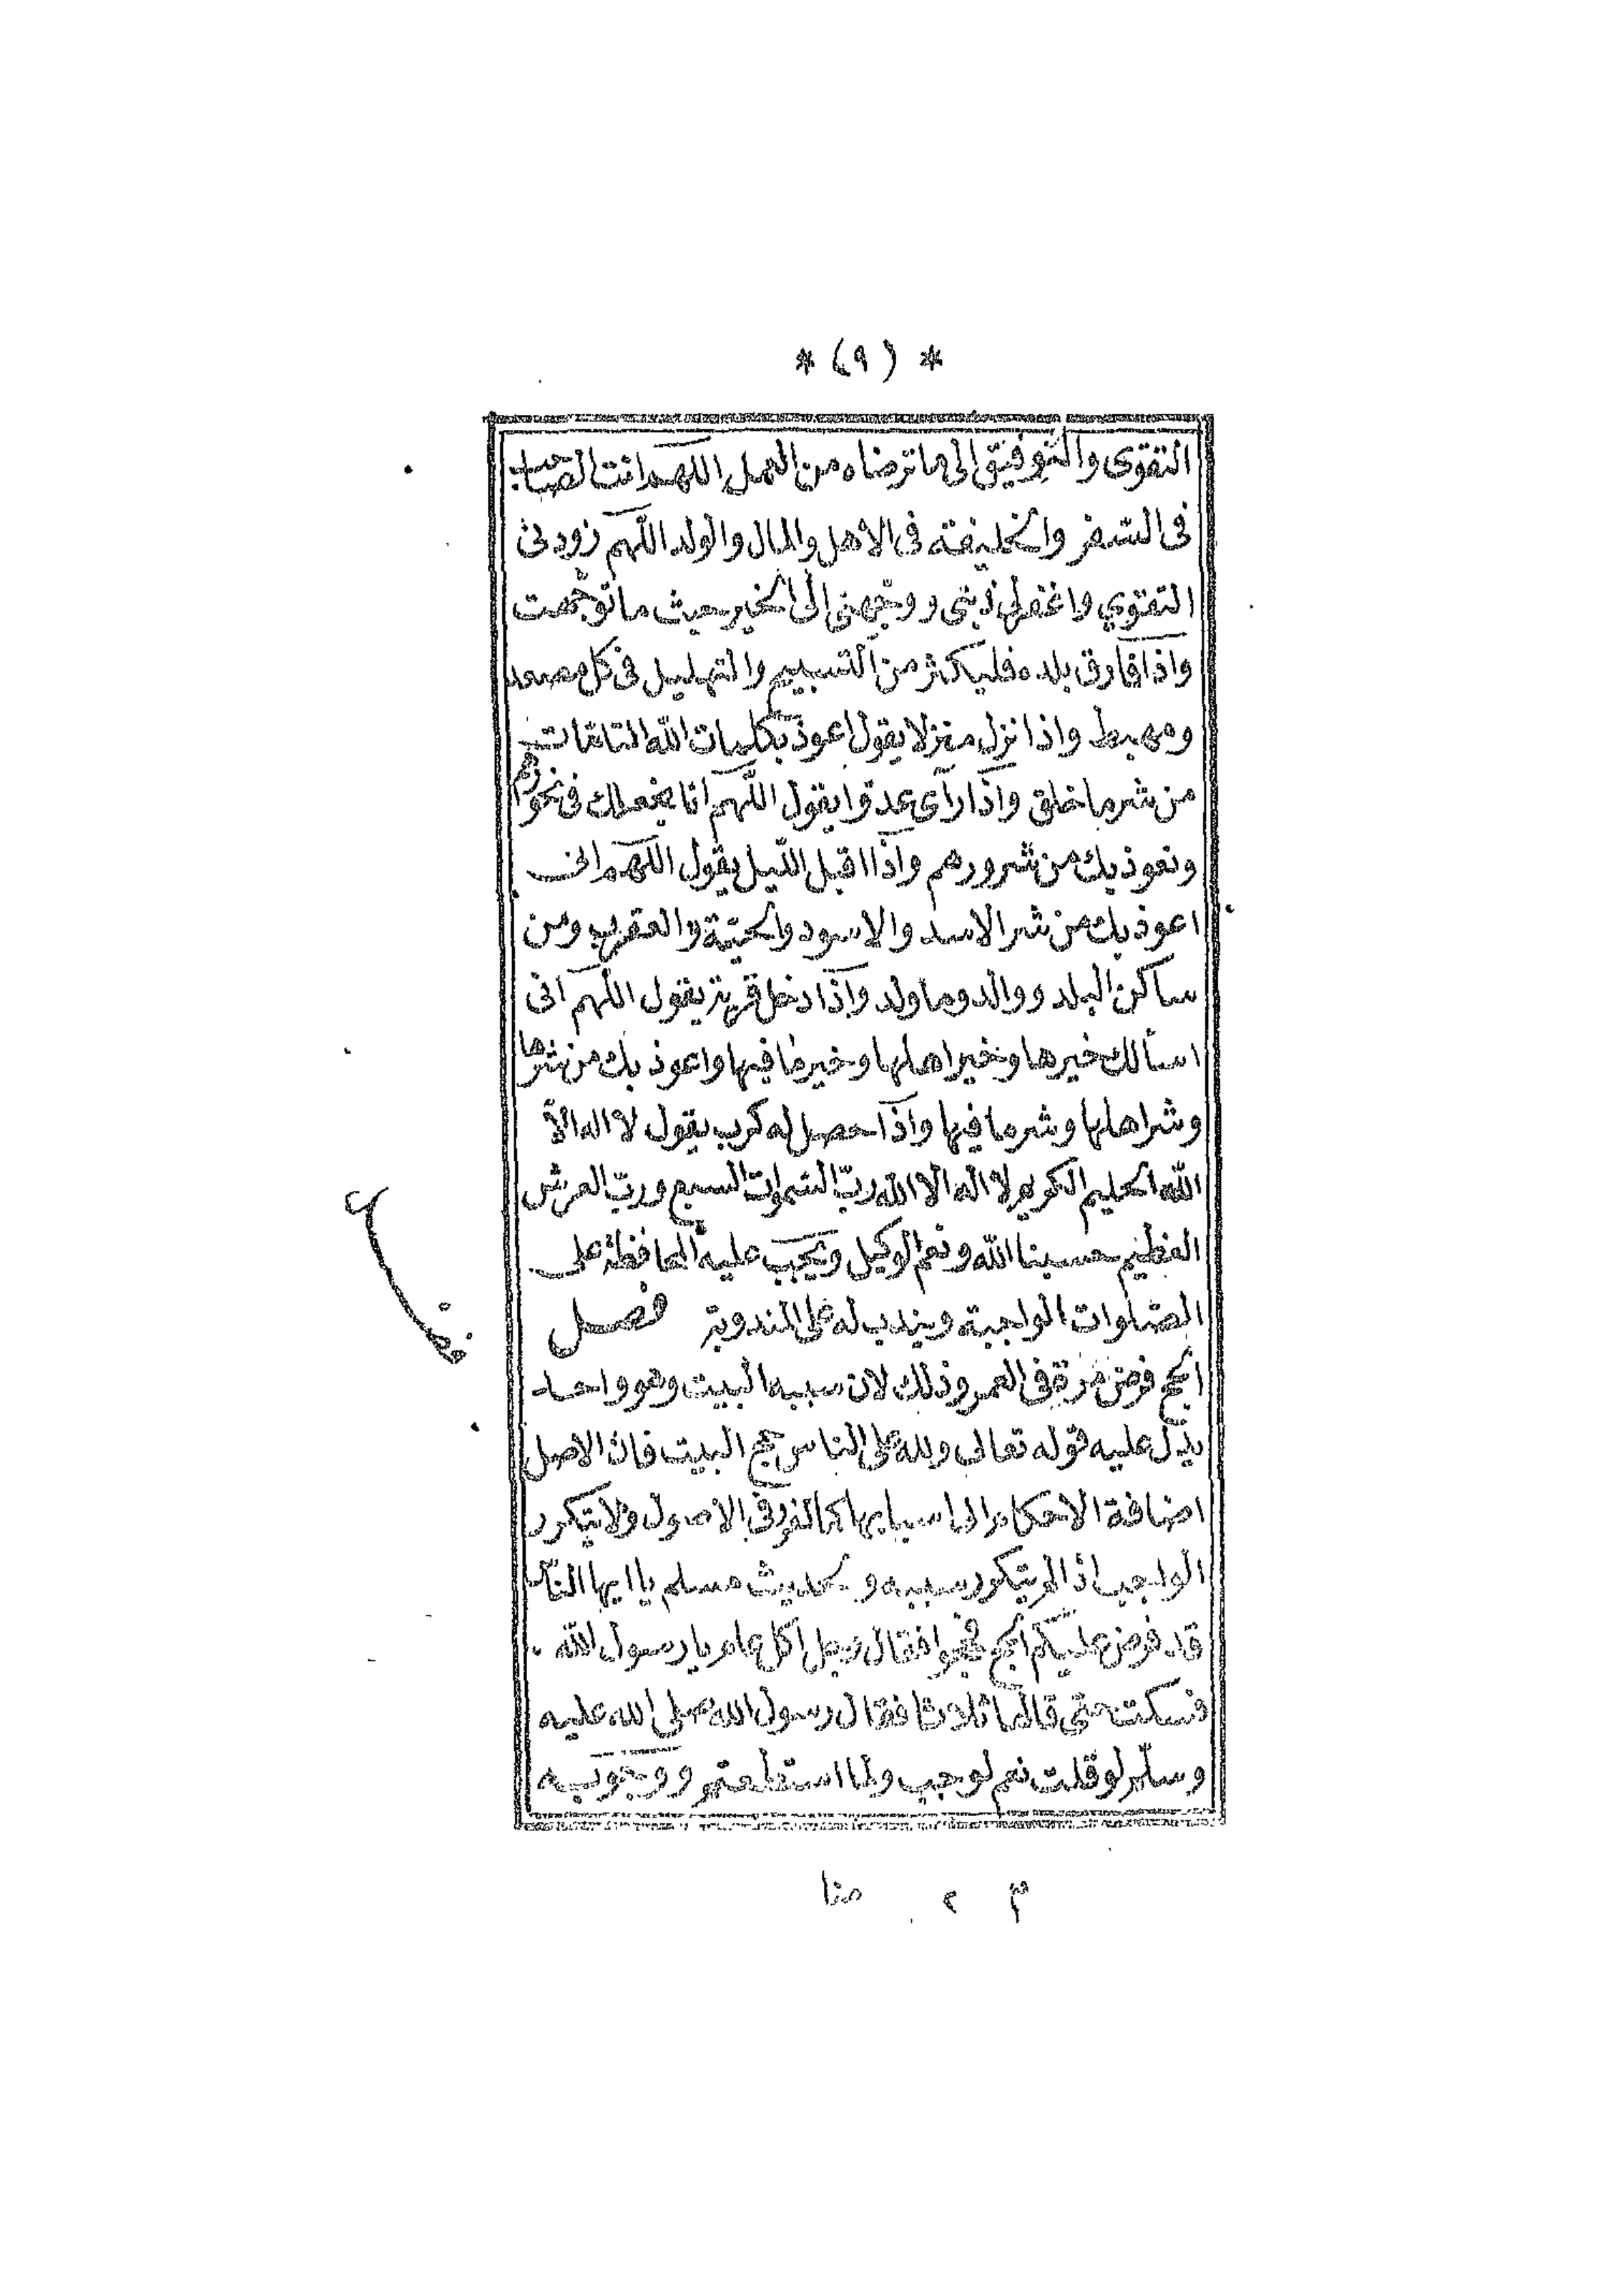 * (٩) *
التقوى والتوفيق الى ما ترضاه من العمل اللهم انت الصاحب
فى السفر والخليفة فى الاهل والمال والولد اللهم زودنى
التقوي واغفرلى ذنبى ووجهنى الى الخير حيث ما توجهت
واذا فارق بلده فليكثر من التسبيح والتهليل فى كل مصعد
ومهبط واذا نزل منزلا يقول اعوذ بكلمات الله التامات
من شر ما خلق واذا رآى عدوا يقول اللهم انا نجعلك فى نحورهم
ونعوذ بك من شرورهم واذا اقبل الليل يقول اللهم انى
اعوذ بك من شر الاسد والاسود والحية والعقرب ومن
ساكن البلد ووالد وما ولد واذا دخل قرية يقول اللهم انى
اسألك خيرها وخير اهلها وخير ما فيها واعوذ بك من شرها
وشر اهلها وشر ما فيها واذا حصل له كرب يقول لا اله الا
الله الحليم الكريم لا اله الا الله رب السموات السبع ورب العرش
العظيم حسبنا الله ونعم الوكيل ويجب عليه المحافظة على
الصلوات الواجبة ويندب له على المندوبة فصل
الحج فرض مرة فى العمر وذلك لان سببه البيت وهو واحد
يدل عليه قوله تعالى ولله على الناس حج البيت فان الاصل
اضافة الاحكام الى اسبابها كما تقرر فى الاصول ولا يتكرر
الواجب اذا لم يتكرر سببه و لحديث مسلم يا ايها الناس
قد فرض عليكم الحج فحجوا فقال رجل اكل عام يا رسول الله
فسكت حتى قالها ثلاثا فقال رسول الله صلى الله عليه
وسلم لو قلت نعم لوجب ولما استطعتم ووجوبه
م ٢ منا